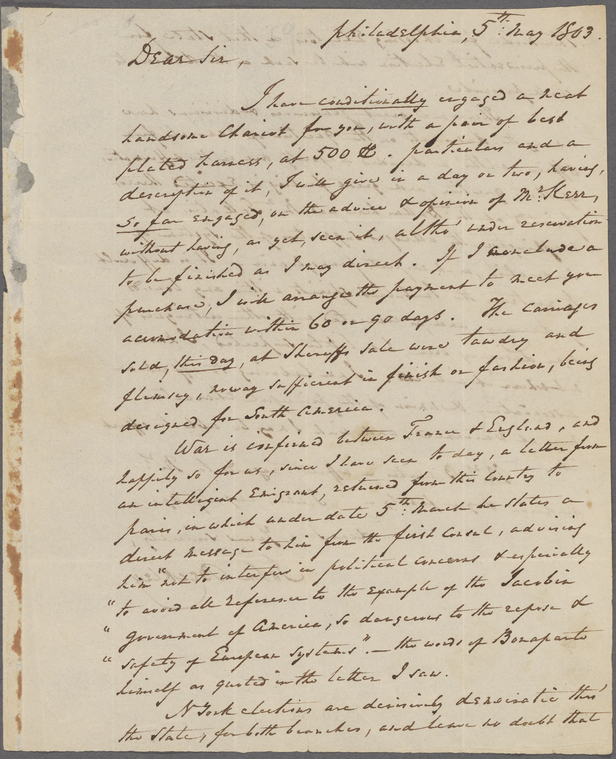 Philadelphia, 5th May 1803.
Dear Sir,
I have conditionally engaged a neat
handsome Chariot for you, with a pair of best
plated harness, at 500 D. particulars and a
description of it, I will give in a day or two, having,
so far engaged, on the advice & opinion of Mr Kerr,
without having, as yet, seen it, altho' under reservation
to be finished as I may direct. If I conclude a
purchase, I will arrange the payment to meet your
accomodation within 60 or 90 days. The carriages
sold, this day, at Sheriffs sale were tawdry and
flimsey, no way sufficient in finish or fashion, being
designed for South America.
War is confirmed between France & England, and
happily so for us, since I have seen to day, a letter from
an intelligent Emigrant, returned from this Country to
paris, in which under date 5th March he states a
direct message to him from the first Consul, advising
him "not to interfere in political concerns & especially
"to avoid all reference to the example of the Jacobin
"government of America, so dangerous to the repose &
"safety of European systems". — the words of Bonaparte
himself as quoted in the letter I saw.
N York elections are decisively democratic thro'
the State, for both branches, and leave no doubt that